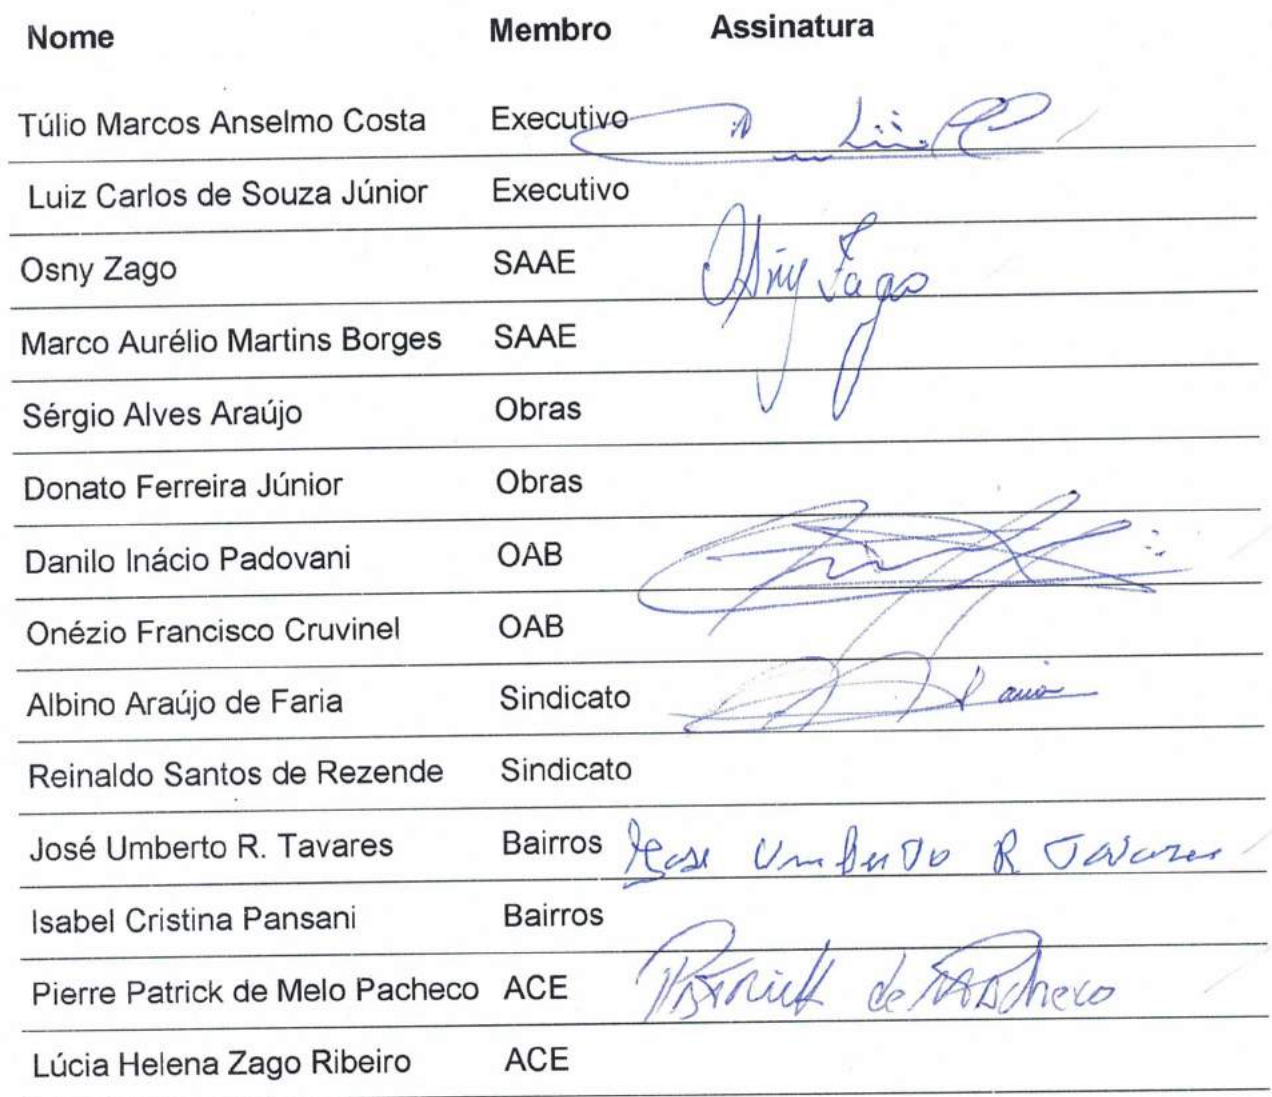 Nome Membro Assinatura
Túlio Marcos Anselmo Costa Executivo
Luiz Carlos de Souza Júnior Executivo
Osny Zago SAAE Osny Zago
Marco Aurélio Martins Borges SAAE
Sérgio Alves Araújo Obras
Donato Ferreira Júnior Obras
Danilo Inácio Padovani OAB
Onézio Francisco Cruvinel OAB
Albino Araújo de Faria Sindicato
Reinaldo Santos de Rezende Sindicato
José Umberto R. Tavares Bairros Jose Umberto R Tavares
Isabel Cristina Pansani Bairros
Pierre Patrick de Melo Pacheco ACE Patrick de M Pacheco
Lúcia Helena Zago Ribeiro ACE